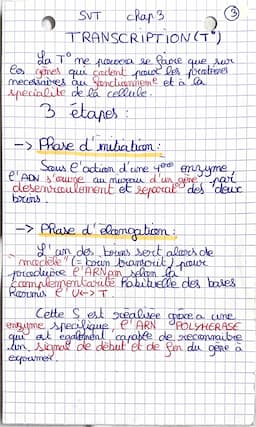 SVT chap.3 ③
TRANSCRIPTION (T°)
La T° ne pourra se faire que sur
les gènes qui codent pour les protéines
nécessaires au fonctionnement et à la
spécialité de la cellule.
3 étapes :
-> Phase d'initiation :
Sous l'action d'une 1ère enzyme
l'ADN s'ouvre au niveau d'un gène par
desenroulement et séparat° des deux
brins.
-> Phase d'élongation :
L'un des brins sert alors de
"modèle" (= brin transcrit) pour
produire l'ARNpm selon la
complémentarité habituelle des bases
Hormis l'U<->T.
Cette S est réalisée grâce à une
enzyme spécifique, l'ARN POLYMERASE
qui est également capable de reconnaître
un signal de début et de fin du gène à
exprimer.